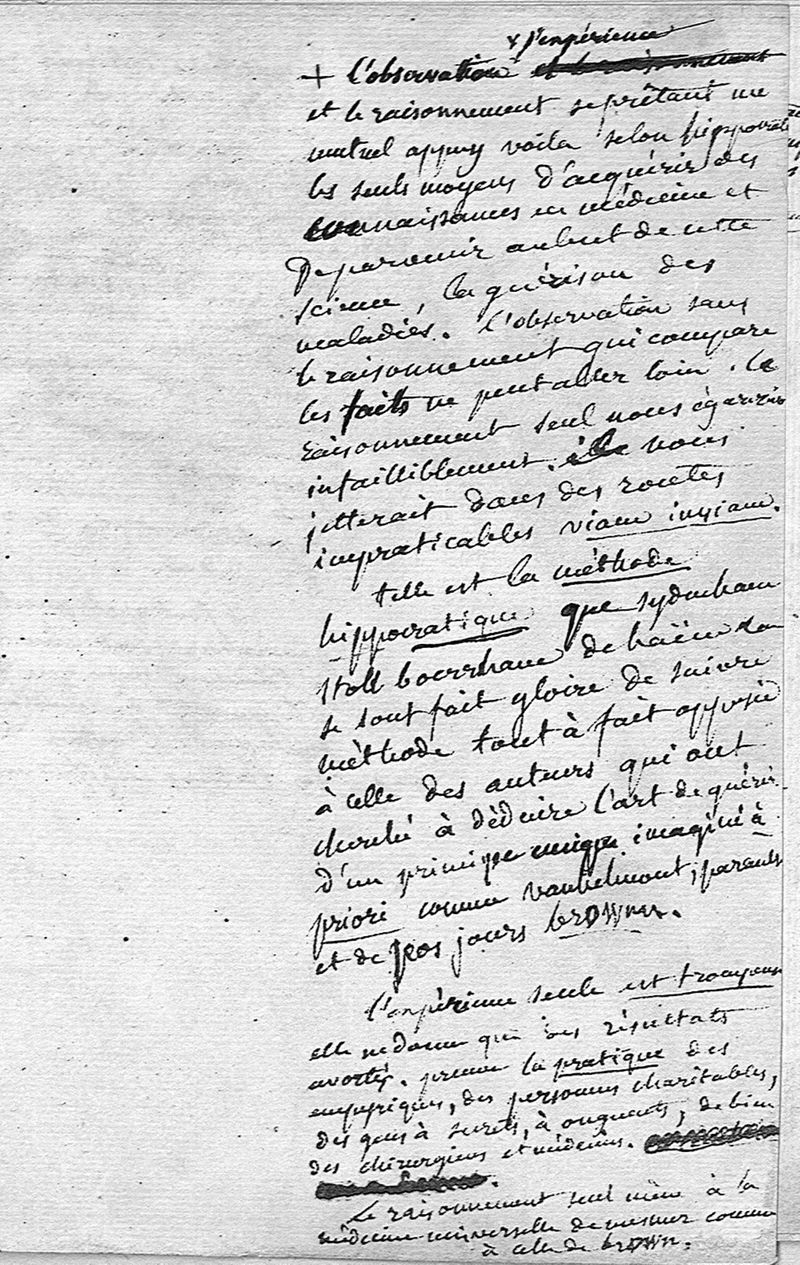 & l'expérience
+ l'observation et le raisonnement
et le raisonnement se prêtant un
mutuel appuy voila selon hippocrate
les seuls moyens d'acquérir des
connaissances en médecine et
De parvenir au but de cette
science, la guérison des
maladies. l'observation sans
le raisonnement qui compare
les faits ne peut aller loin. le
raisonnement seul nous égarerait
infailliblement. nous
jetterait dans des routes
impraticables viam inviam.
telle est la méthode
hippocratique que sydenham
stoll boerrhave de haën
se sont fait gloire de suivre
méthode tout à fait opposée
à celle des auteurs qui ont
cherché à déduire l'art de guérir
d'un principe unique imaginé à
priori comme vanhelmont,
et de nos jours brown.
l'expérience seule est trompeuse
elle ne donne que des résultats
avortés. preuve la pratique des
empyriques, des personnes charitables,
des gens à secrets, à onguents, de bien
des chirurgiens et médecins.
Le raisonnement seul mène à la
médecine universelle de mesmer comme
à celle de brown.